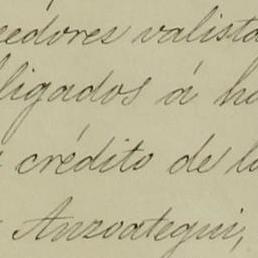 eedores valista
ligados á ha
crédito de lo
Anzoategui,